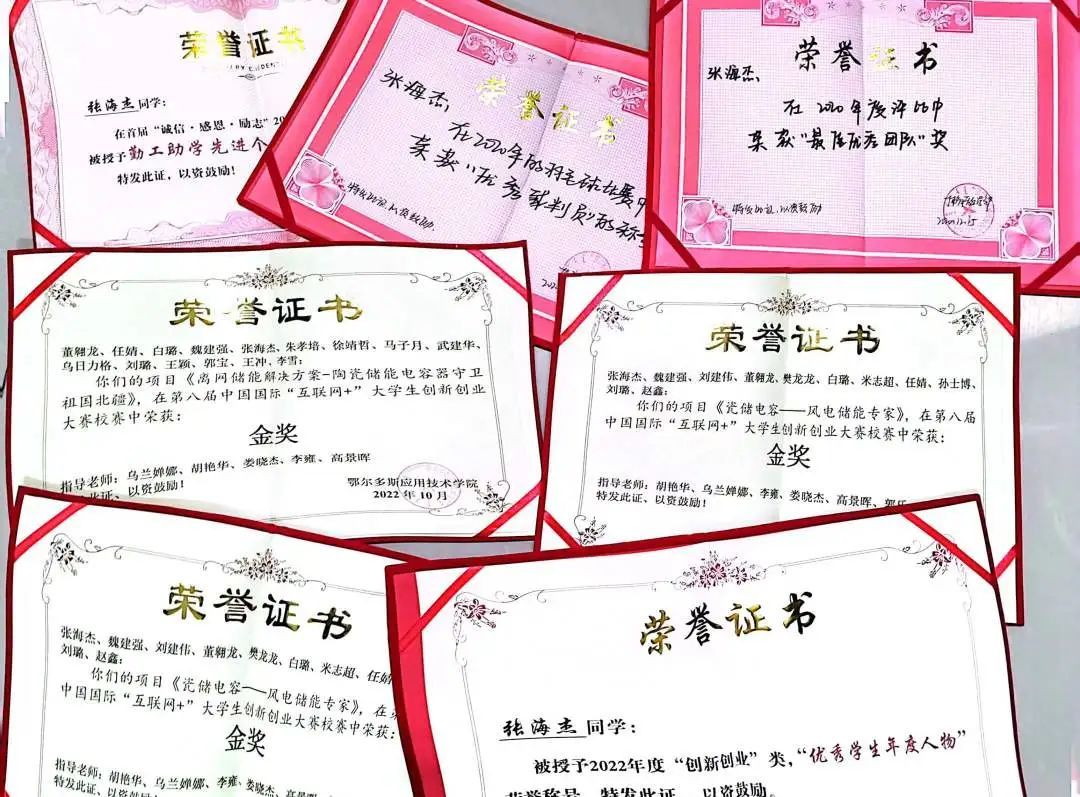 荣誉证书
张海杰同学:
在首届“诚信·感恩·励志”
被授予勤工助学先进个
特发此证,以资鼓励!
荣誉证书
张海杰,
在2020年的羽毛球比赛中
荣获“优秀裁判员”的称
特发此证,以资鼓励
荣誉证书
张海杰,
在2020年度评比中
荣获“最佳优秀团队”奖
特发此证,以资鼓励
2020.12.15
荣誉证书
董翱龙、任婧、白璐、魏建强、张海杰、朱孝培、徐靖哲、马子月、武建华、
乌日力格、刘璐、王颖、郭宝、王冲、李雪:
你们的项目《离网储能解决方案-陶瓷储能电容器守卫
祖国北疆》,在第八届中国国际“互联网+”大学生创新创业
大赛校赛中荣获:
金奖
指导老师:乌兰婵娜、胡艳华、娄晓杰、李雍、高景晖
此证、以资鼓励!
鄂尔多斯应用技术学院
2022年10月
荣誉证书
张海杰、魏建强、刘建伟、董翱龙、樊龙龙、白璐、米志超、任婧、孙士博、
刘璐、赵鑫:
你们的项目《瓷储电容——风电储能专家》,在第八届
中国国际“互联网+”大学生创新创业大赛校赛中荣获:
金奖
指导老师:胡艳华、乌兰婵娜、李雍、娄晓杰、高景晖、
特发此证、以资鼓励!
荣誉证书
张海杰、魏建强、刘建伟、董翱龙、樊龙龙、白璐、米志超、任婧
刘璐、赵鑫:
你们的项目《瓷储电容——风电储能专家》,在
中国国际“互联网+”大学生创新创业大赛校赛中荣获:
金奖
指导老师:胡艳华、乌兰婵娜、李雍、娄晓杰、高景
特发此证、以资鼓励!
荣誉证书
张海杰同学:
被授予2022年度“创新创业”类,“优秀学生年度人物”
荣誉称号,特发此证,以资鼓励。